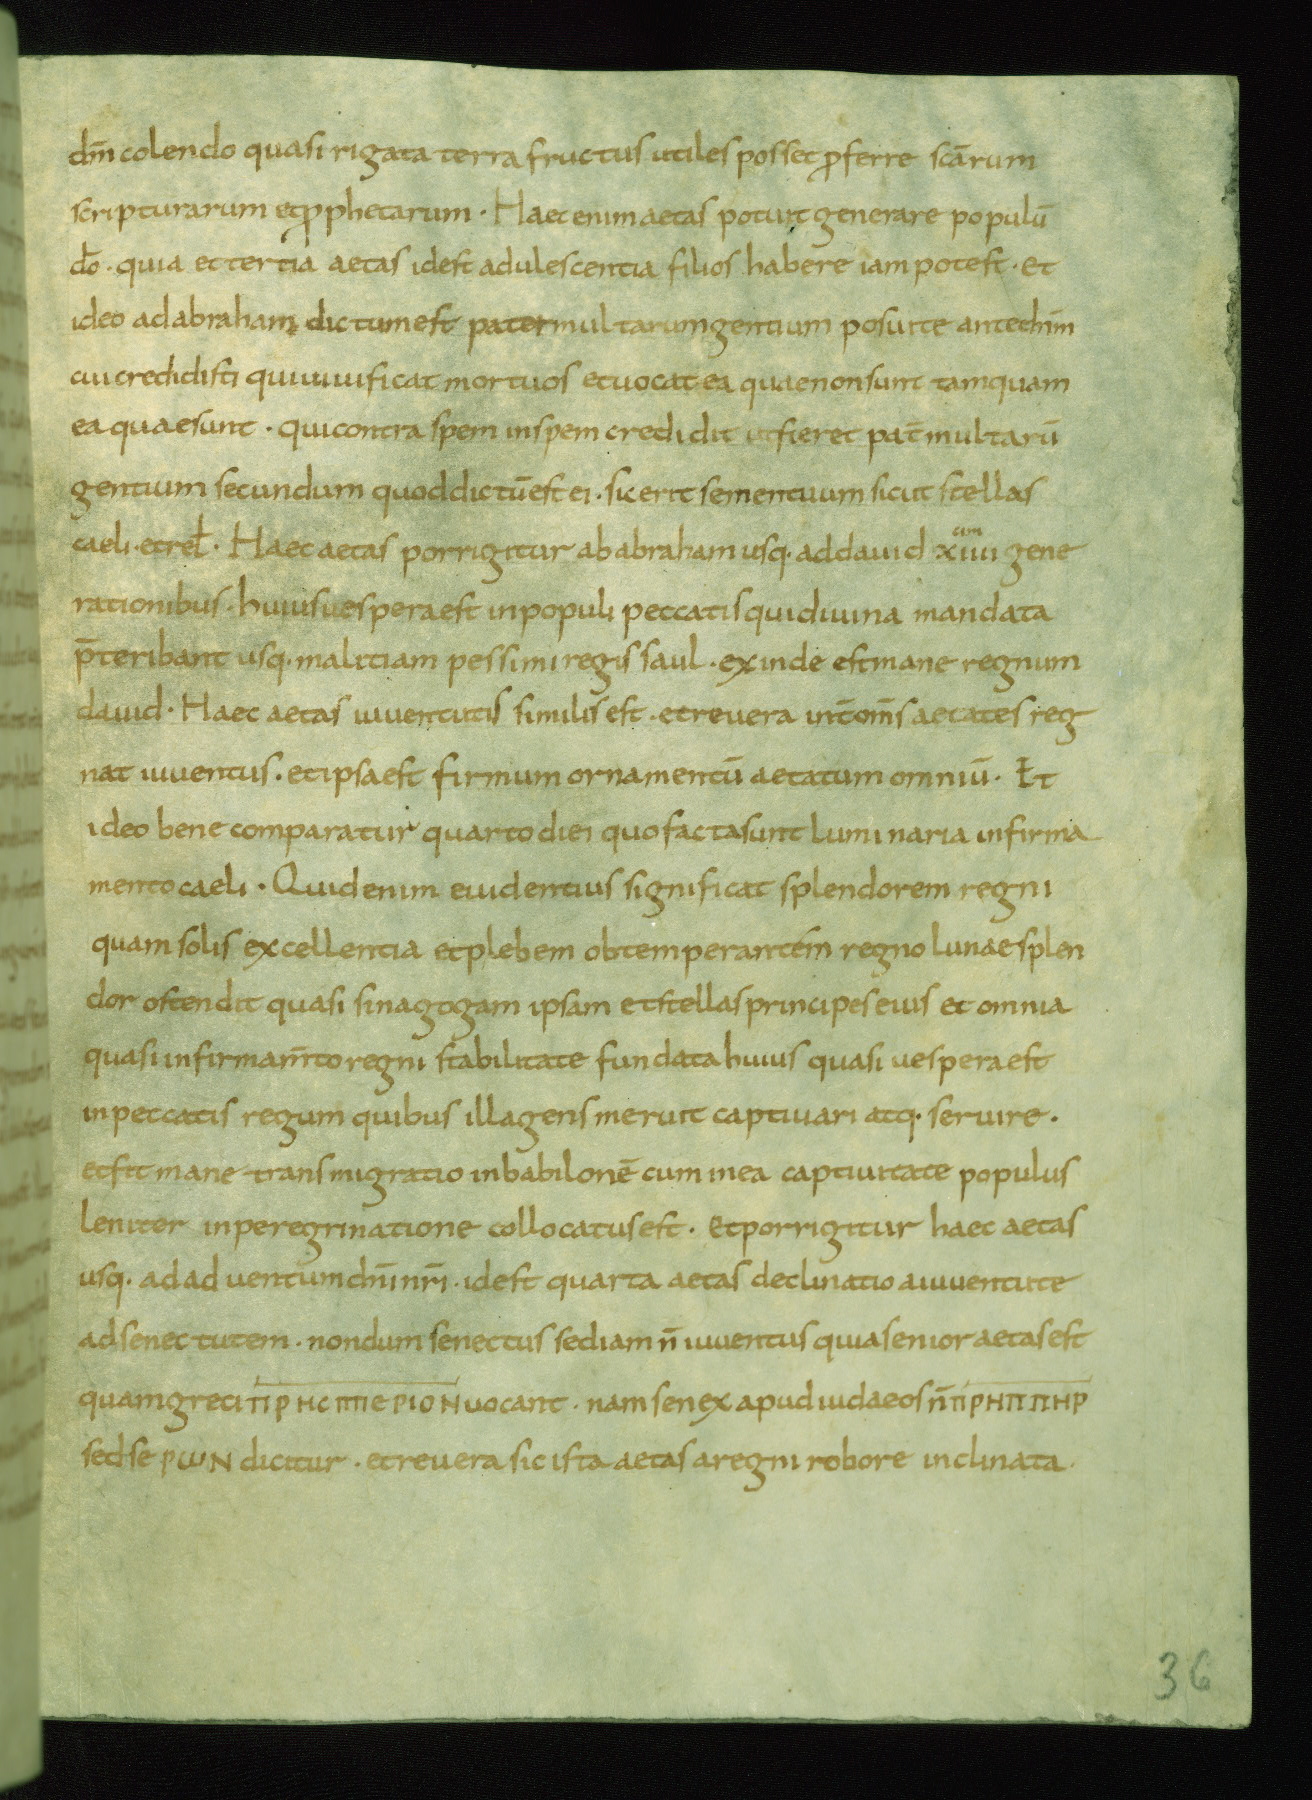 dm̄ colendo quasi rigata terra fructus utiles posset ꝓferre scārum
scripturarum et ꝓphetarum · Haec enim aetas potuit generare populū
dō · quia et tertia aetas id est adulescentia filios habere iam potest · et
ideo ad abraham dictum est pater multarum gentium posui te ante dnm̄
cui credidisti qui uiuificat mortuos et uocat ea quae non sunt tamquam
ea quae sunt · qui contra spem in spem credidit ut fieret pat̄ multarū
gentium secundum quod dictū est ei · sic erit semen tuum sicut stellas
caeli · et reł · Haec aetas porrigitur ab abraham usq· ad dauid xiiii cim gene
rationibus · huius uespera est in populi peccatis qui diuina mandata
p̄teribant usq· malitiam pessimi regis saul · ex inde est mane regnum
dauid · Haec aetas iuuentutis similis est · et reuera int̄ om̄s aetates reg
nat iuuentus · et ipsa est firmum ornamentū aetatum omniū · Et
ideo bene comparatur quarto diei quo facta sunt luminaria in firma
mento caeli · Quid enim euidentius significat splendorem regni
quam solis excellentia et plebem obtemperantem regno lunae splen
dor ostendit quasi sinagogam ipsam et stellas principes eius et omnia
quasi in firmam̄to regni stabilitate fundata huius quasi uespera est
in peccatis regum quibus illa gens meruit captiuari atq· seruire ·
et fit mane transmigratio in babilonē cum in ea captiuitate populus
leniter in peregrinatione collocatus est · Et porrigitur haec aetas
usq· ad aduentum dnī nrī · id est quarta aetas declinatio a iuuentute
ad senectutem · nondum senectus sed iam n̄ iuuentus quia senior aetas est
quam greci ΠΡΗCΠΠΕΡΙΟΝ uocant · nam senex apud iudaeos n̄ ΠΡΗΠΠΗΡ
sed se ΡѠΝ dicitur · et reuera sic ista aetas a regni robore inclinata ·
36